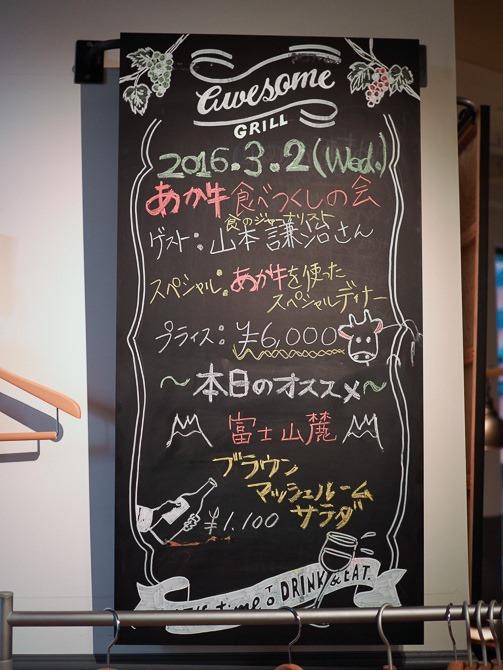 awesome
GRILL
2016.3.2(Wed.)
あか牛食べつくしの会
食のジャーナリスト
ゲスト:山本謙治さん
スペシャル:あか牛を使った
スペシャルディナー
プライス:¥6,000
〜本日のオススメ〜
富士山麓
ブラウン
マッシュルーム
サラダ
¥1,100
time TO DRINK & EAT.